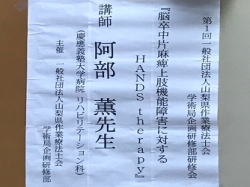 第1回一般社団法人山梨県作業療法士会
学術局企画研修部研修会
『脳卒中片麻痺上肢機能障害に対する
HANDS therapy』
講師 阿部 薫先生
（慶應義塾大学病院 リハビリテーション科）
主催 一般社団法人山梨県作業療法士会
学術局企画研修部